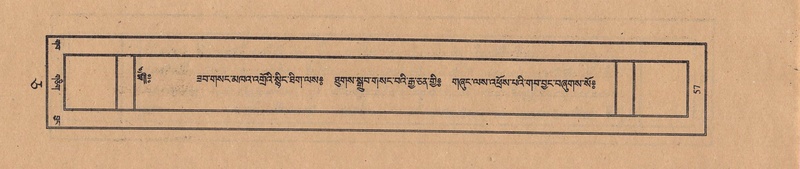 ཟབ་གསང་མཁའ་འགྲོའི་སྙིང་ཐིག་ལས༔ ཐུགས་སྒྲུབ་གསང་བའི་རྒྱ་ཅན་གྱི༔ གཞུང་ལས་འཕྲོས་པའི་གབ་བྱང་བཞུགས་སོ༔